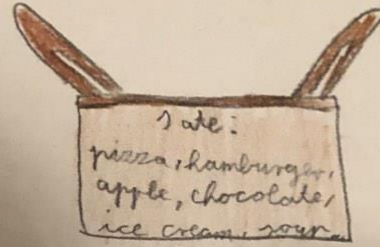 I ate:
pizza, hamburger,
apple, chocolate,
ice cream, sour